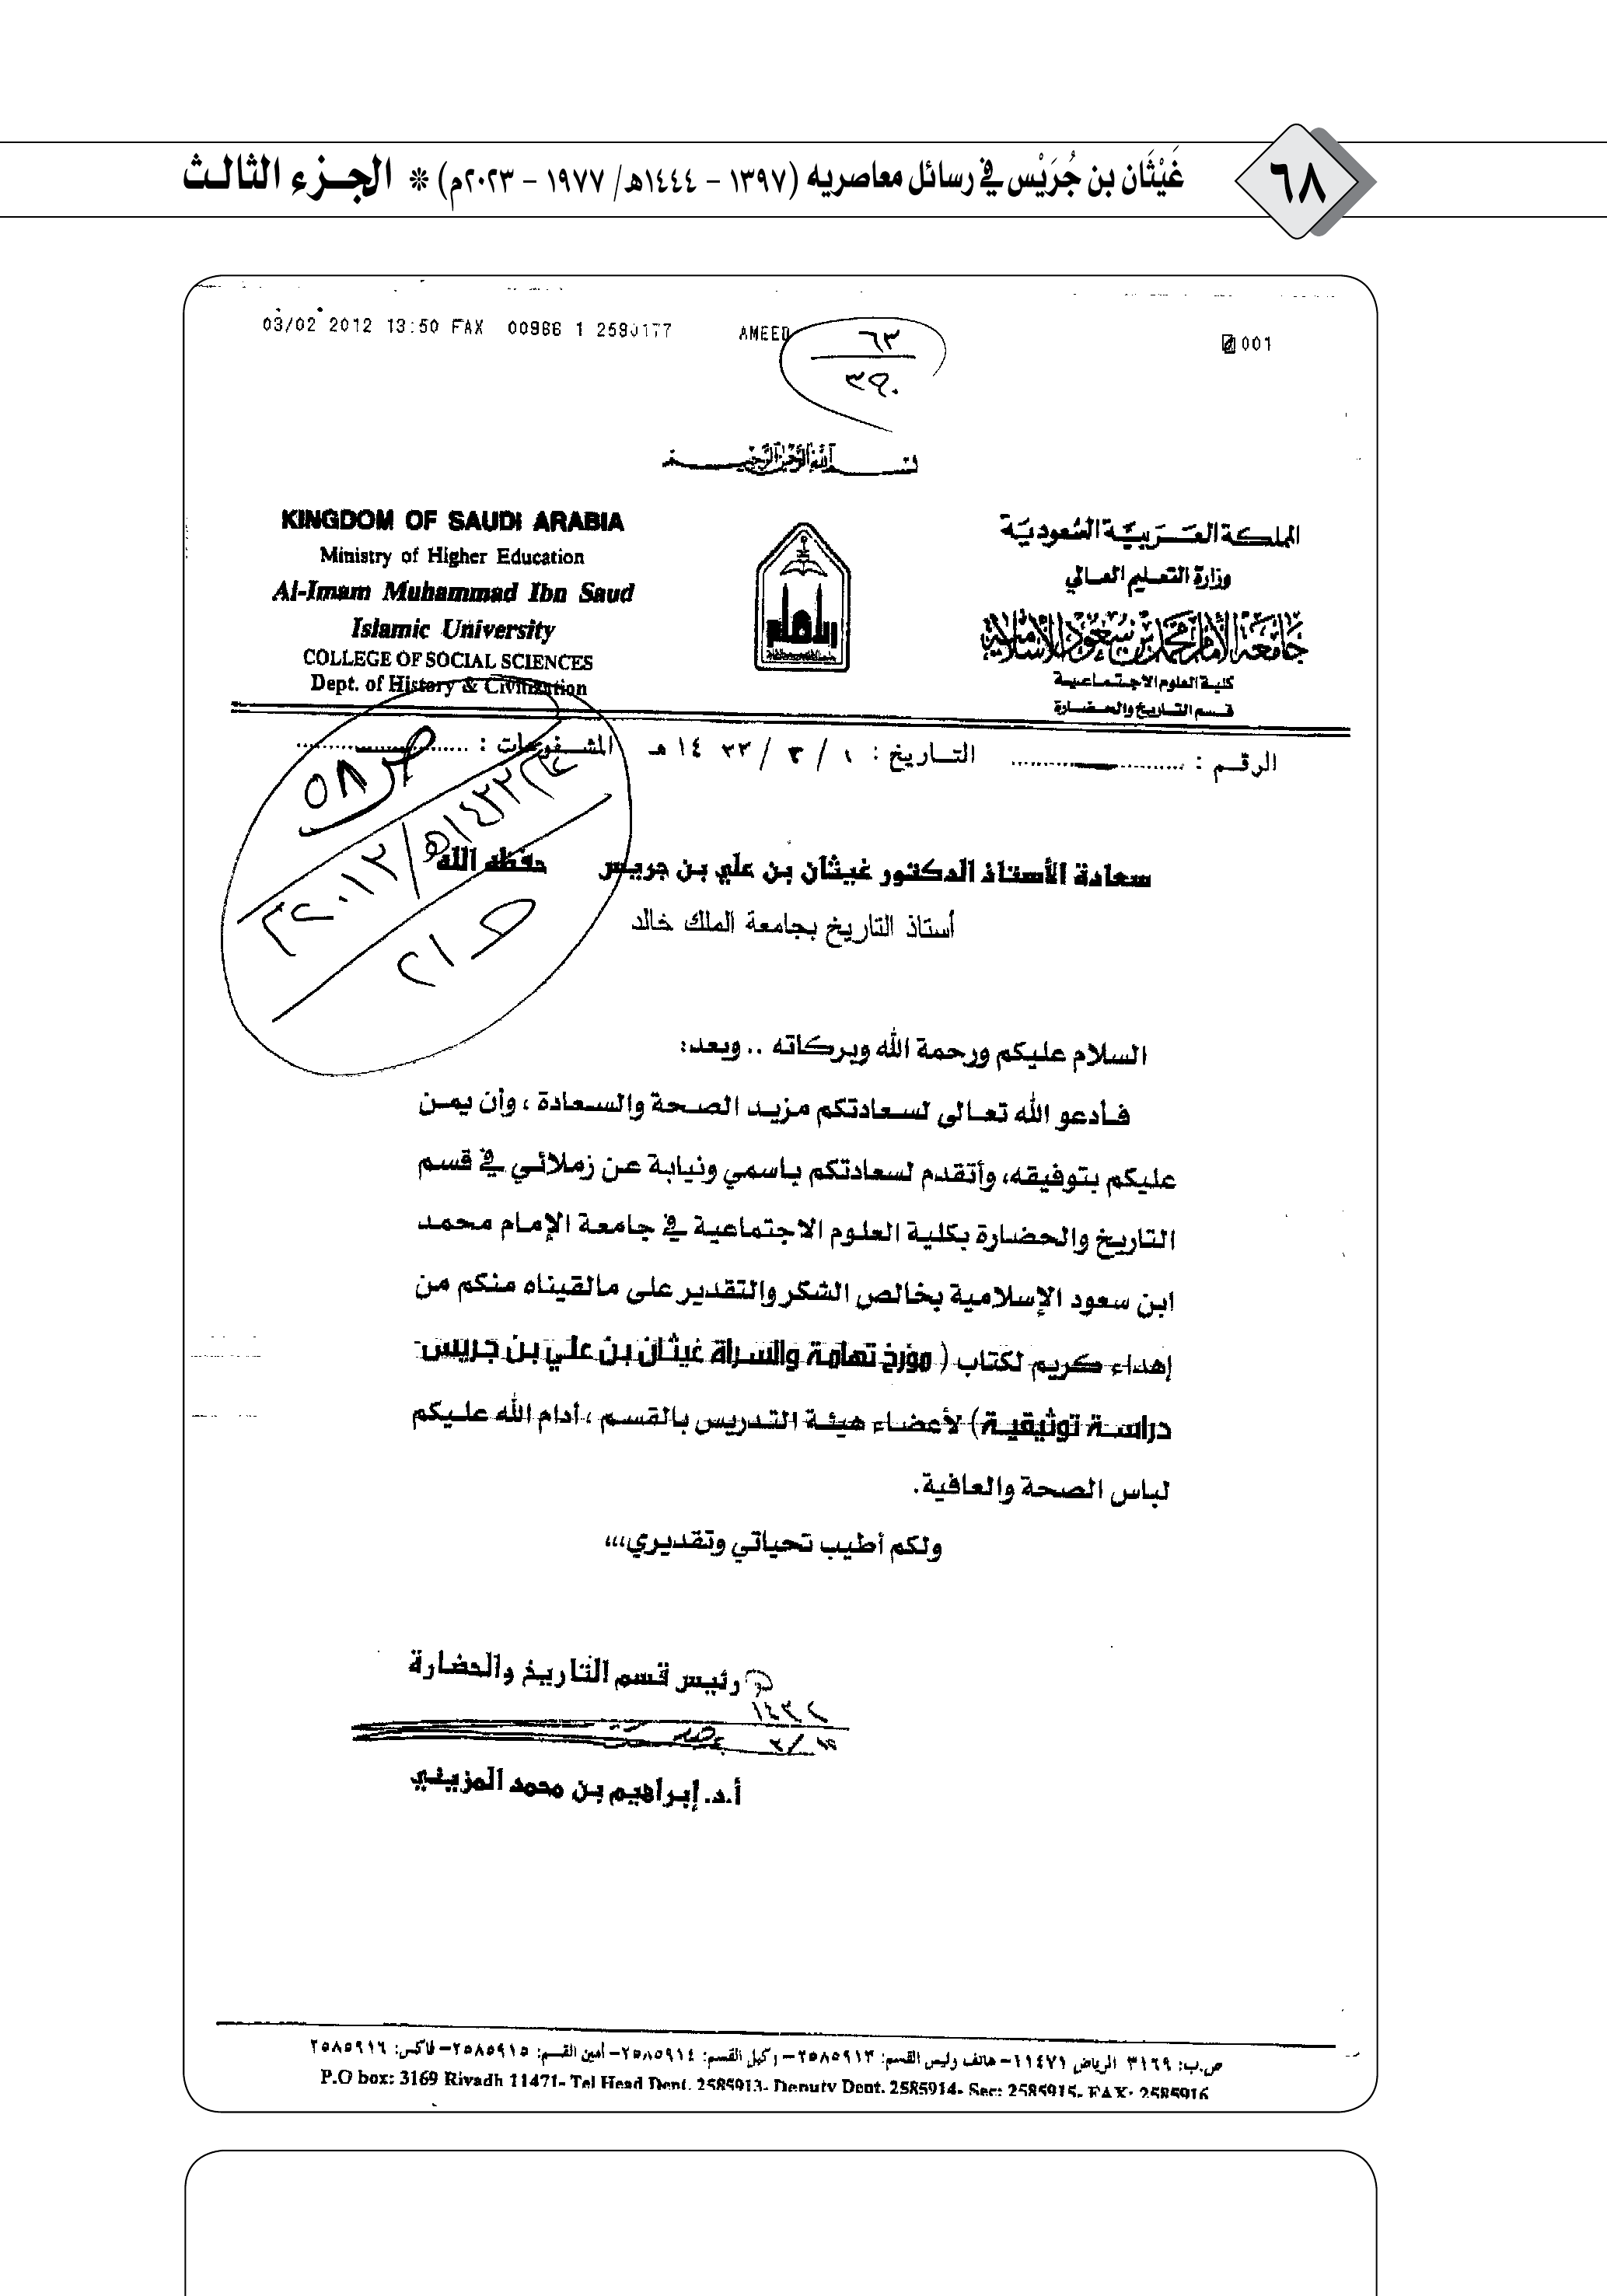 ٦٨
غَيْثَان بن جُرَيْس في رسائل معاصريه (١٣٩٧ - ١٤٤٤هـ/ ١٩٧٧ - ٢٠٢٣م) * الجزء الثالث
03/02 2012 13:50 FAX 00966 1 2590177 AMEED 001
٦٣
٣٩٠
بسم الله الرحمن الرحيم
KINGDOM OF SAUDI ARABIA
Ministry of Higher Education
Al-Imam Muhammad Ibn Saud
Islamic University
COLLEGE OF SOCIAL SCIENCES
Dept. of History & Civilization
المملكة العربية السعودية
وزارة التعليم العالي
جامعة الإمام محمد بن سعود الإسلامية
كلية العلوم الاجتماعية
قسم التاريخ والحضارة
الرقم : التاريخ : ١ / ٣ / ١٤٣٣ هـ المشفوعات :
ص ٥٨
١٤٣٣هـ/٢٠١٢م
سعادة الأستاذ الدكتور غيثان بن علي بن جريس حفظه الله
أستاذ التاريخ بجامعة الملك خالد
السلام عليكم ورحمة الله وبركاته .. وبعد:
فأدعو الله تعالى لسعادتكم مزيد الصحة والسعادة ، وأن يمن
عليكم بتوفيقه، وأتقدم لسعادتكم باسمي ونيابة عن زملائي في قسم
التاريخ والحضارة بكلية العلوم الاجتماعية في جامعة الإمام محمد
ابن سعود الإسلامية بخالص الشكر والتقدير على مالقيناه منكم من
إهداء كريم لكتاب ( مؤرخ تهامة والسراة غيثان بن علي بن جريس-
دراسة توثيقية) لأعضاء هيئة التدريس بالقسم ، أدام الله عليكم
لباس الصحة والعافية.
ولكم أطيب تحياتي وتقديري،،،
رئيس قسم التاريخ والحضارة
أ.د. إبراهيم بن محمد المزيني
ص.ب: ٣١٦٩ الرياض ١١٤٧١- هاتف رئيس القسم: ٢٥٨٥٩١٣- وكيل القسم: ٢٥٨٥٩١٤- أمين القسم: ٢٥٨٥٩١٥- فاكس: ٢٥٨٥٩١٦
P.O box: 3169 Riyadh 11471- Tel Head Dept. 2585913- Deputy Dept. 2585914- Sec: 2585915- FAX: 2585916